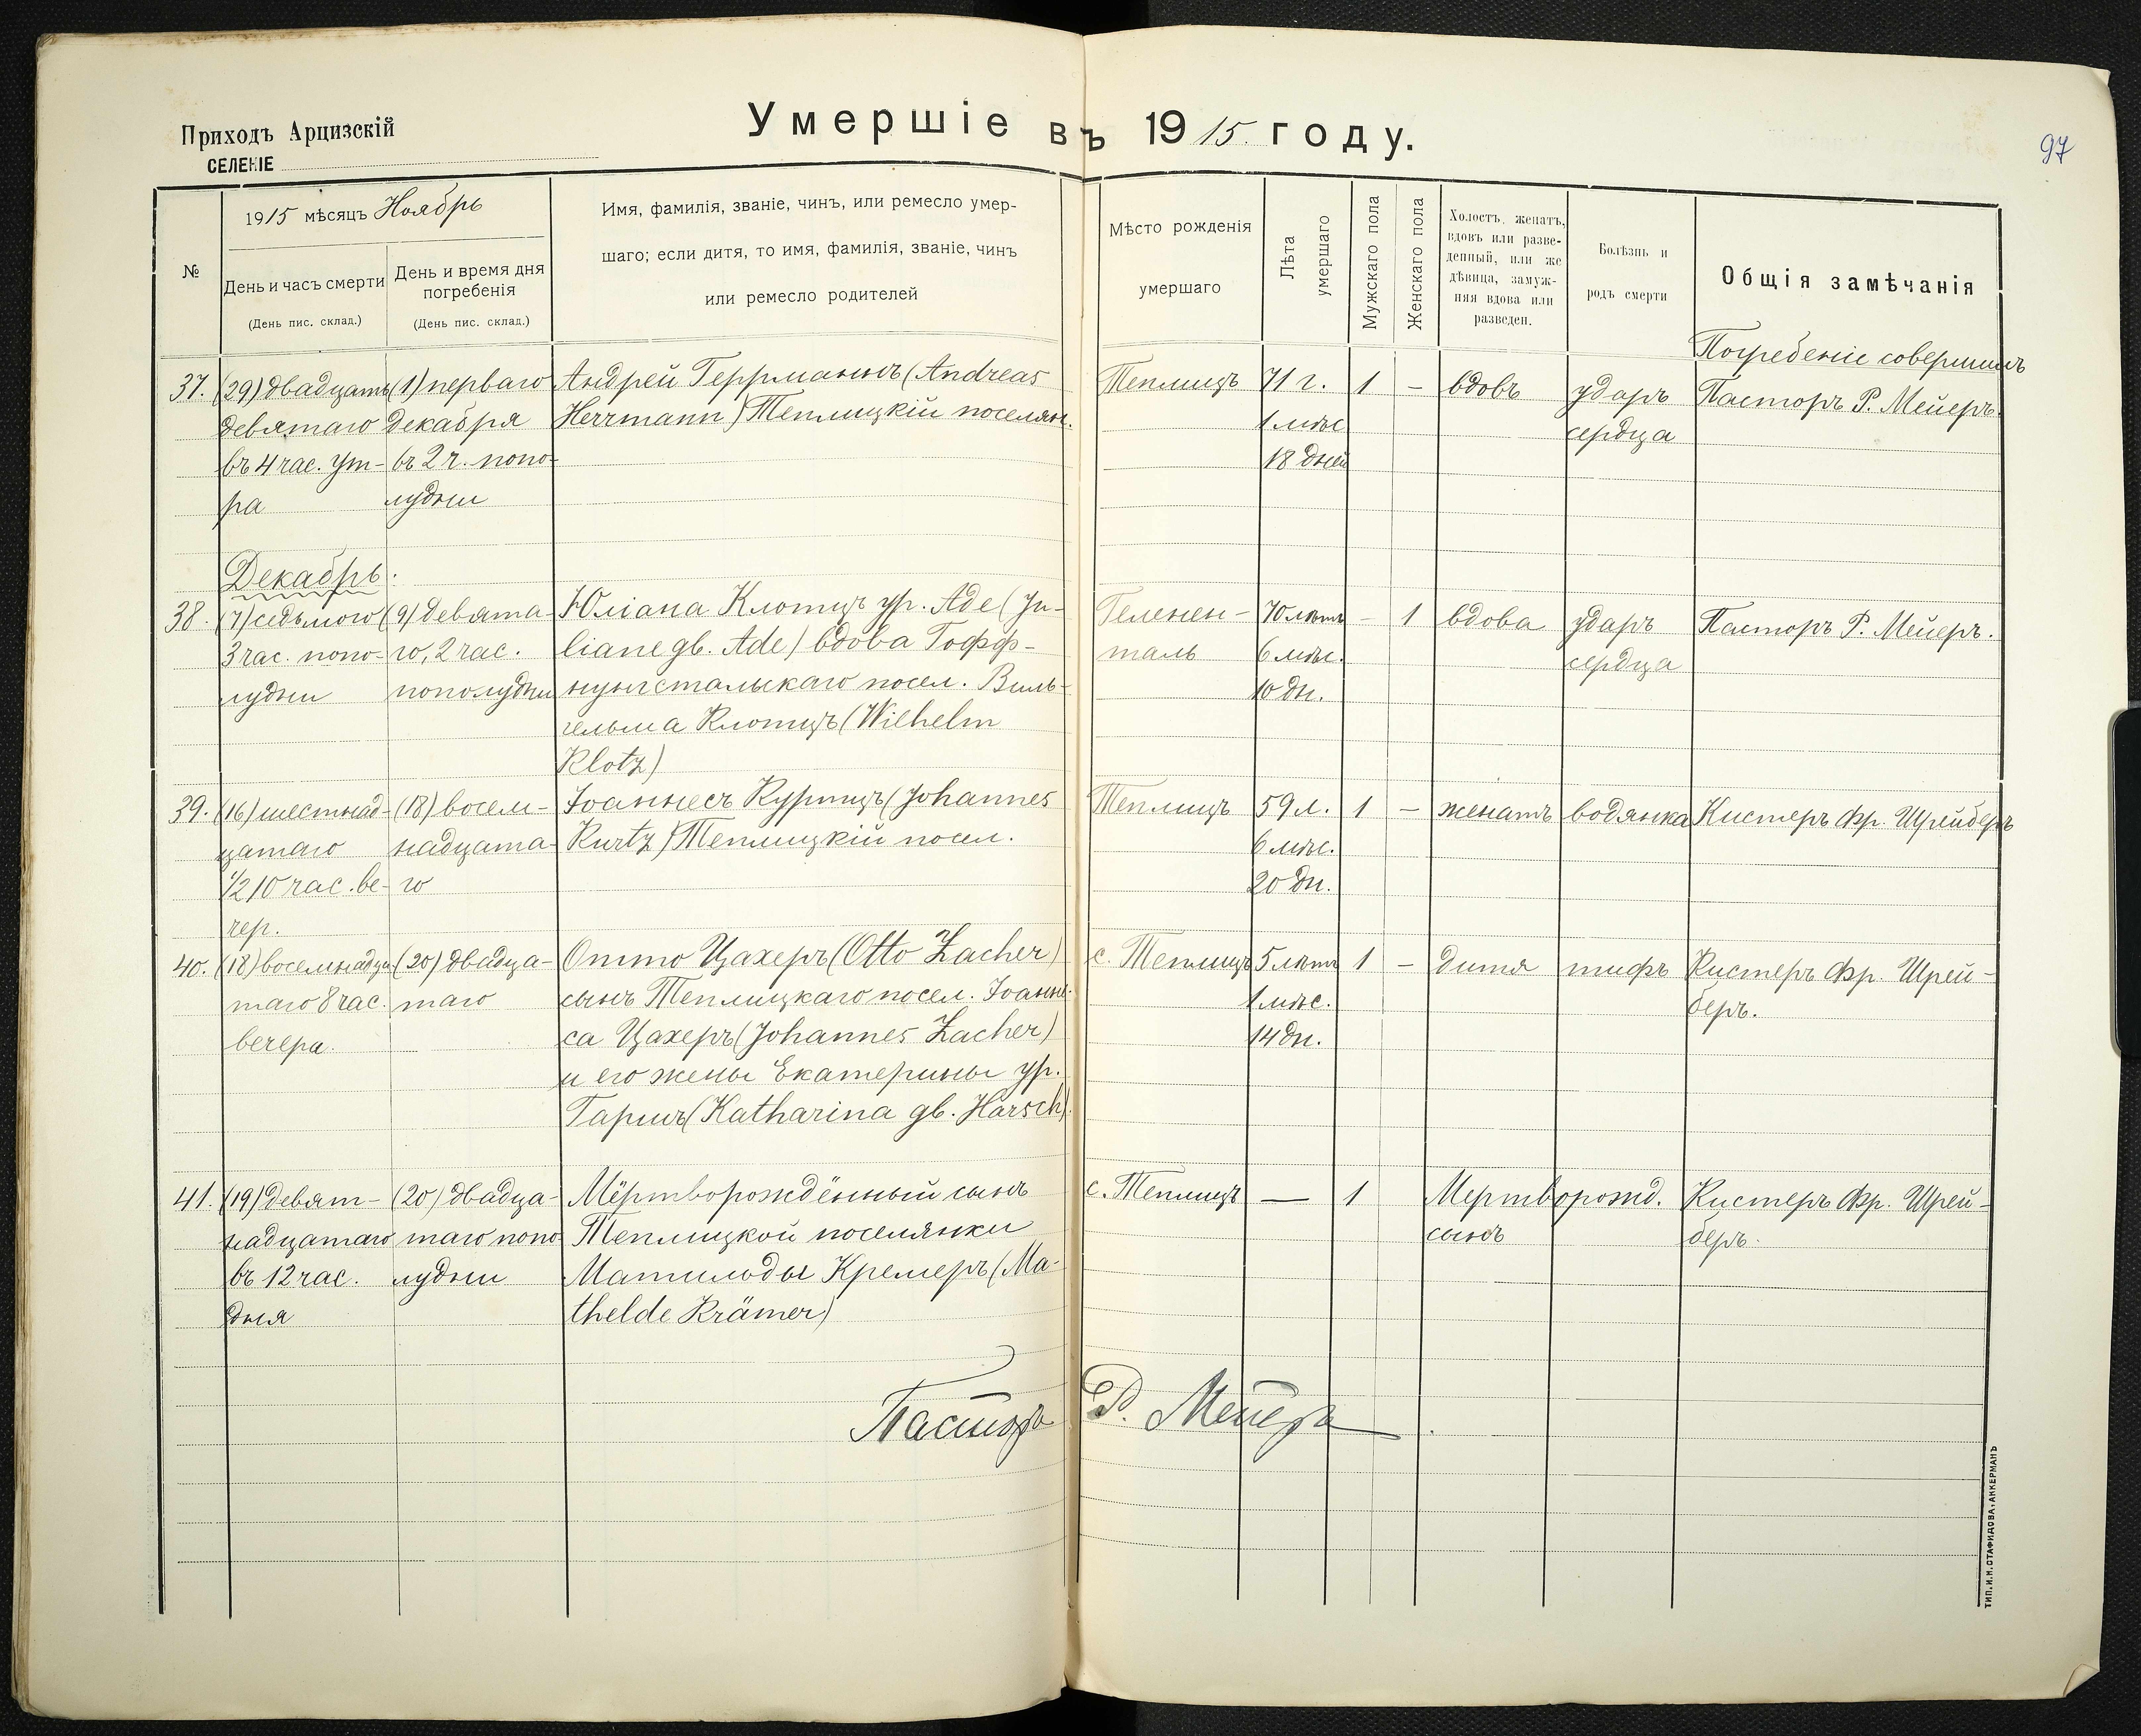 Приходъ Арцизскій
СЕЛЕНІЕ
Умершіе въ 1915 году.
97
№
1915 мѣсяцъ Ноябрь
День и часъ смерти
(День пис. склад.)
День и время дня
погребенія
(День пис. склад.)
Имя, фамилія, званіе, чинъ, или ремесло умер-
шаго; если дитя, то имя, фамилія, званіе, чинъ
или ремесло родителей
Мѣсто рожденія
умершаго
Лѣта
умершаго
Мужскаго пола
Женскаго пола
Холостъ, женатъ,
вдовъ или разве-
денный, или же
дѣвица, замуж-
няя вдова или
разведен.
Болѣзнь и
родъ смерти
Общія замѣчанія
37.
(29) двадцать
девятаго
въ 4 час. ут-
ра
(1) перваго
Декабря
въ 2 ч. попо-
лудни
Андрей Геррманнъ (Andreas
Herrmann) Теплицкій поселян.
Теплицъ
71 г.
1 мѣс
18 дней
1
–
вдовъ
ударъ
сердца
Погребеніе совершилъ
Пасторъ Р. Мейеръ.
Декабрь.
38.
(7) седьмого
3 час. попо-
лудни
(9) девята-
го, 2 час.
пополудни
Юліана Клотцъ ур. Аде (Ju-
liane gb. Ade) вдова Гофф-
нунгстальскаго посел. Виль-
гельма Клотцъ (Wilhelm
Klotz)
Геленен-
таль
70 лѣтъ
6 мѣс.
10 дн.
–
1
вдова
ударъ
сердца
Пасторъ Р. Мейеръ.
39.
(16) шестнад-
цатаго
1/2 10 час. ве-
чер.
(18) восем-
надцата-
го
Іоаннесъ Куртцъ (Johannes
Kurtz) Теплицкій посел.
Теплицъ
59 л.
6 мѣс.
20 дн.
1
–
женатъ
водянка
Кистеръ Фр. Шрейберъ
40.
(18) восемнадца
таго 8 час.
вечера.
(20) двадца-
таго
Отто Цахеръ (Otto Zacher)
сынъ Теплицкаго посел. Іоанне-
са Цахеръ (Johannes Zacher)
и его жены Екатерины ур.
Гаршъ (Katharina gb. Harsch).
с. Теплицъ
5 лѣтъ
1 мѣс.
14 дн.
1
–
дитя
тифъ
Кистеръ Фр. Шрей-
беръ.
41.
(19) девят-
надцатаго
въ 12 час.
дня
(20) двадца-
таго попо
лудни
Мёртворождённый сынъ
Теплицкой поселянки
Матильды Кремеръ (Ma-
thelde Krämer)
с. Теплицъ
—
1
Мертворожд.
сынъ
Кистеръ Фр. Шрей-
беръ.
Пасторъ Р. Мейеръ
ТИП. И. Н. СТАФИДОВА, АККЕРМАНЪ